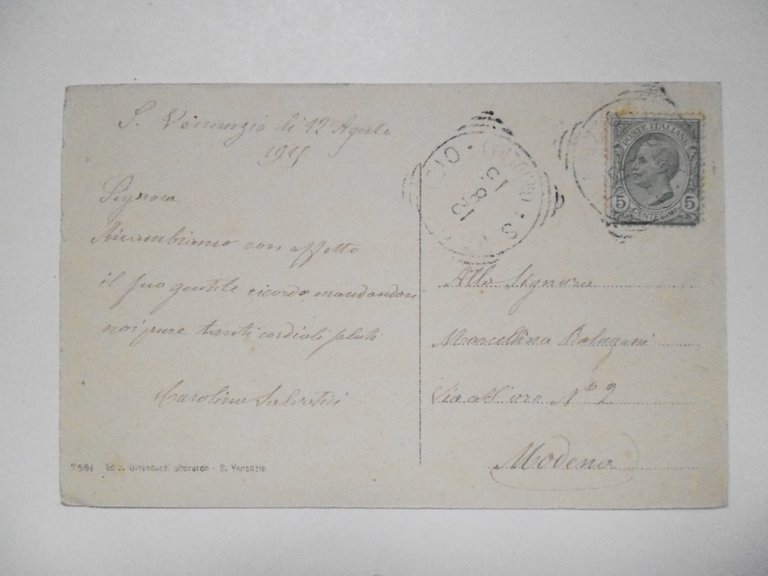 S. Venanzio li 12 Agosto
1915
Signora
Ricambiamo con affetto
il suo gentile ricordo mandandovi
noi pure tanti cordiali saluti
Carolina Salvatici
Ed. Giovanardi - S. Venanzio
15.8.12
POSTE ITALIANE
5 CENTESIMI 5
Alla Signora
Marcellina Bolugani
Via dell'oro N° 2
Modena